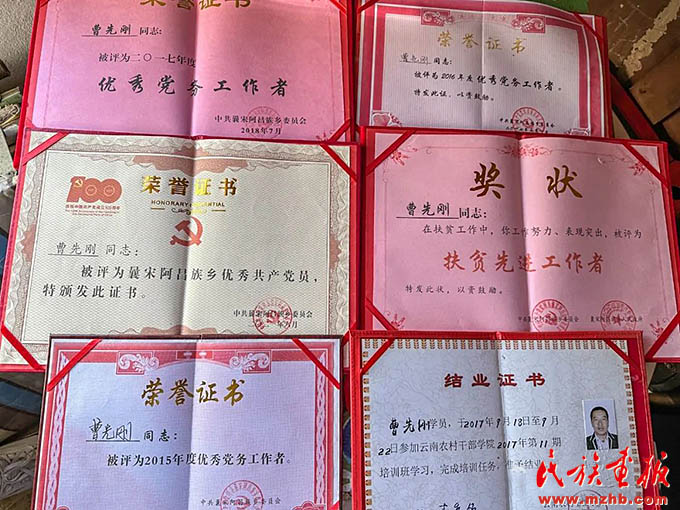 曹先刚 同志：
被评为二〇一七年度
优秀党务工作者
中共曩宋阿昌族乡委员会
2018年7月
荣誉证书
曹先刚 同志：
被评为2016年度优秀党务工作者。
特发此证，以资鼓励。
100
荣誉证书
HONORARY CREDENTIAL
曹先刚 同志：
被评为曩宋阿昌族乡优秀共产党员，
特颁发此证书。
中共曩宋阿昌族乡委员会
奖状
曹先刚 同志：
在扶贫工作中，你工作努力、表现突出，被评为
扶贫先进工作者
特发此状，以资鼓励。
荣誉证书
曹先刚 同志：
被评为2015年度优秀党务工作者。
中共曩宋阿昌族乡委员会
结业证书
曹先刚学员，于2017年9月18日至9月
22日参加云南农村干部学院2017年第11期
培训班学习，完成培训任务，准予结业。
民族画报
www.mzhb.com